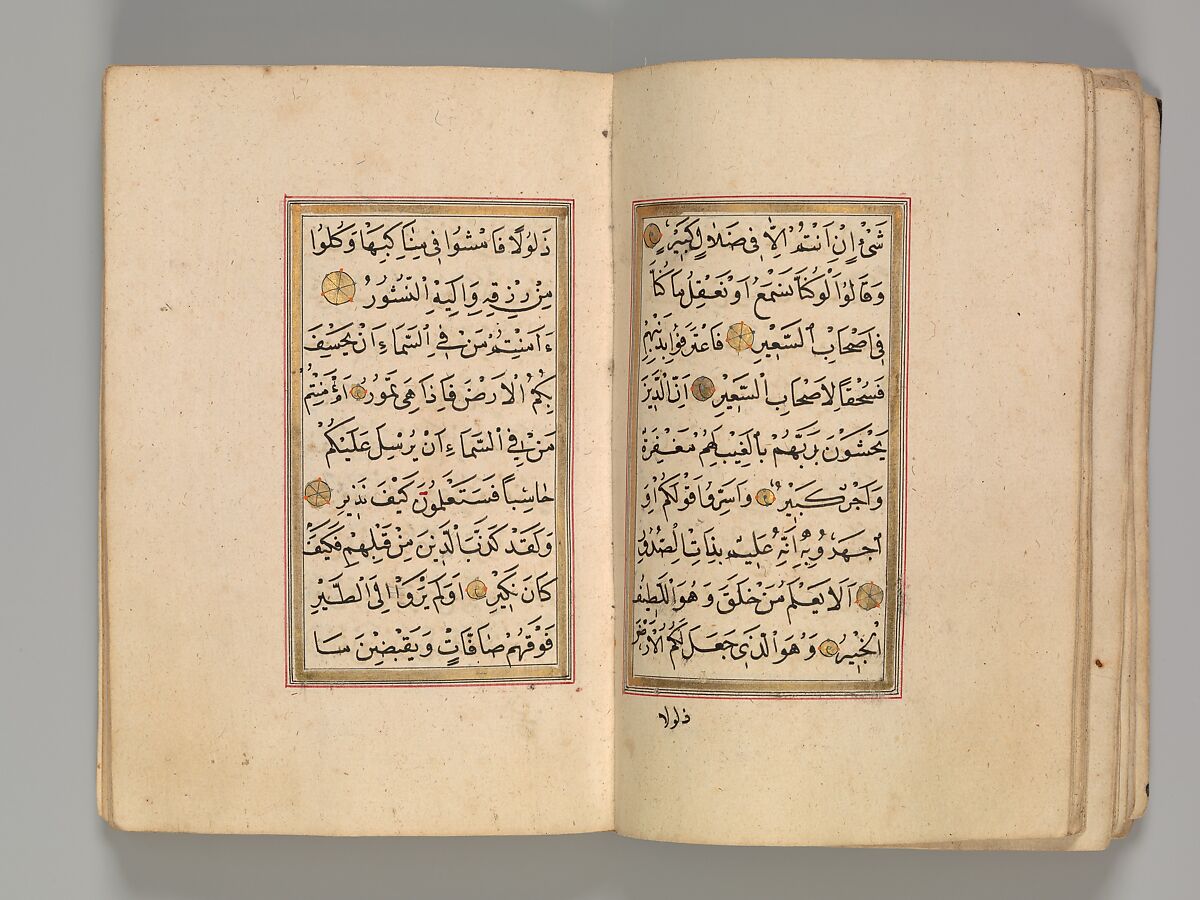 شَىْءٍ اِنْ اَنْتُمْ اِلَّا فٖى ضَلَالٍ كَبٖيرٍ
وَقَالُوا لَوْ كُنَّا نَسْمَعُ اَوْ نَعْقِلُ مَا كُنَّا
فٖى اَصْحَابِ السَّعٖيرِ فَاعْتَرَفُوا بِذَنْبِهِمْ
فَسُحْقاً لِاَصْحَابِ السَّعٖيرِ اِنَّ الَّذٖينَ
يَخْشَوْنَ رَبَّهُمْ بِالْغَيْبِ لَهُمْ مَغْفِرَةٌ
وَاَجْرٌ كَبٖيرٌ وَاَسِرُّوا قَوْلَكُمْ اَوِ
اجْهَرُوا بِهٖ اِنَّهُ عَلٖيمٌ بِذَاتِ الصُّدُورِ
اَلَا يَعْلَمُ مَنْ خَلَقَ وَهُوَ اللَّطٖيفُ
الْخَبٖيرُ وَهُوَ الَّذٖى جَعَلَ لَكُمُ الْاَرْضَ
ذلولا
ذَلُولًا فَامْشُوا فٖى مَنَاكِبِهَا وَكُلُوا
مِنْ رِزْقِهٖ وَاِلَيْهِ النُّشُورُ
ءَاَمِنْتُمْ مَنْ فِى السَّمَاءِ اَنْ يَخْسِفَ
بِكُمُ الْاَرْضَ فَاِذَا هِىَ تَمُورُ اَمْ اَمِنْتُمْ
مَنْ فِى السَّمَاءِ اَنْ يُرْسِلَ عَلَيْكُمْ
حَاصِباً فَسَتَعْلَمُونَ كَيْفَ نَذٖيرِ
وَلَقَدْ كَذَّبَ الَّذٖينَ مِنْ قَبْلِهِمْ فَكَيْفَ
كَانَ نَكٖيرِ اَوَلَمْ يَرَوْا اِلَى الطَّيْرِ
فَوْقَهُمْ صَافَّاتٍ وَيَقْبِضْنَ مَا